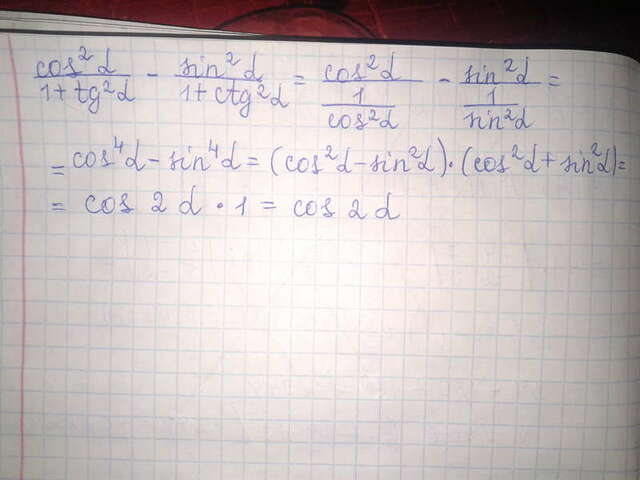 cos²α/(1+tg²α) - sin²α/(1+ctg²α) = cos²α/(1/cos²α) - sin²α/(1/sin²α) =
= cos⁴α - sin⁴α = (cos²α - sin²α)·(cos²α + sin²α) =
= cos 2α · 1 = cos 2α